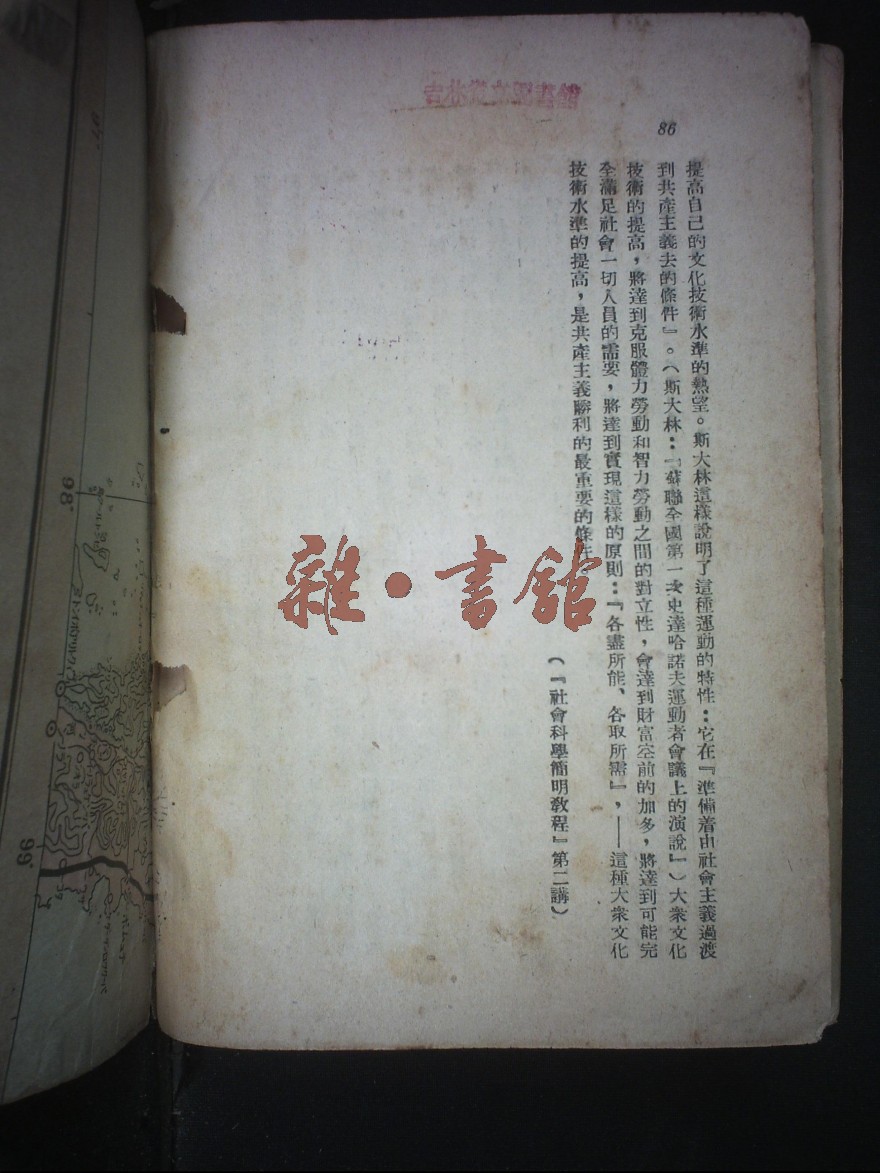 86
提高自己的文化技術水準的熱望。斯大林這樣說明了這種運動的特性：它在『準備着由社會主義過渡
到共產主義去的條件』。（斯大林：「蘇聯全國第一次史達哈諾夫運動者會議上的演說」）大衆文化
技術的提高，將達到克服體力勞動和智力勞動之間的對立性，會達到財富空前的加多，將達到可能完
全滿足社會一切人員的需要，將達到實現這樣的原則：『各盡所能、各取所需』，——這種大衆文化
技術水準的提高，是共產主義勝利的最重要的條件
（『社會科學簡明教程』第二講）
雜·書館
97°
98°
99°